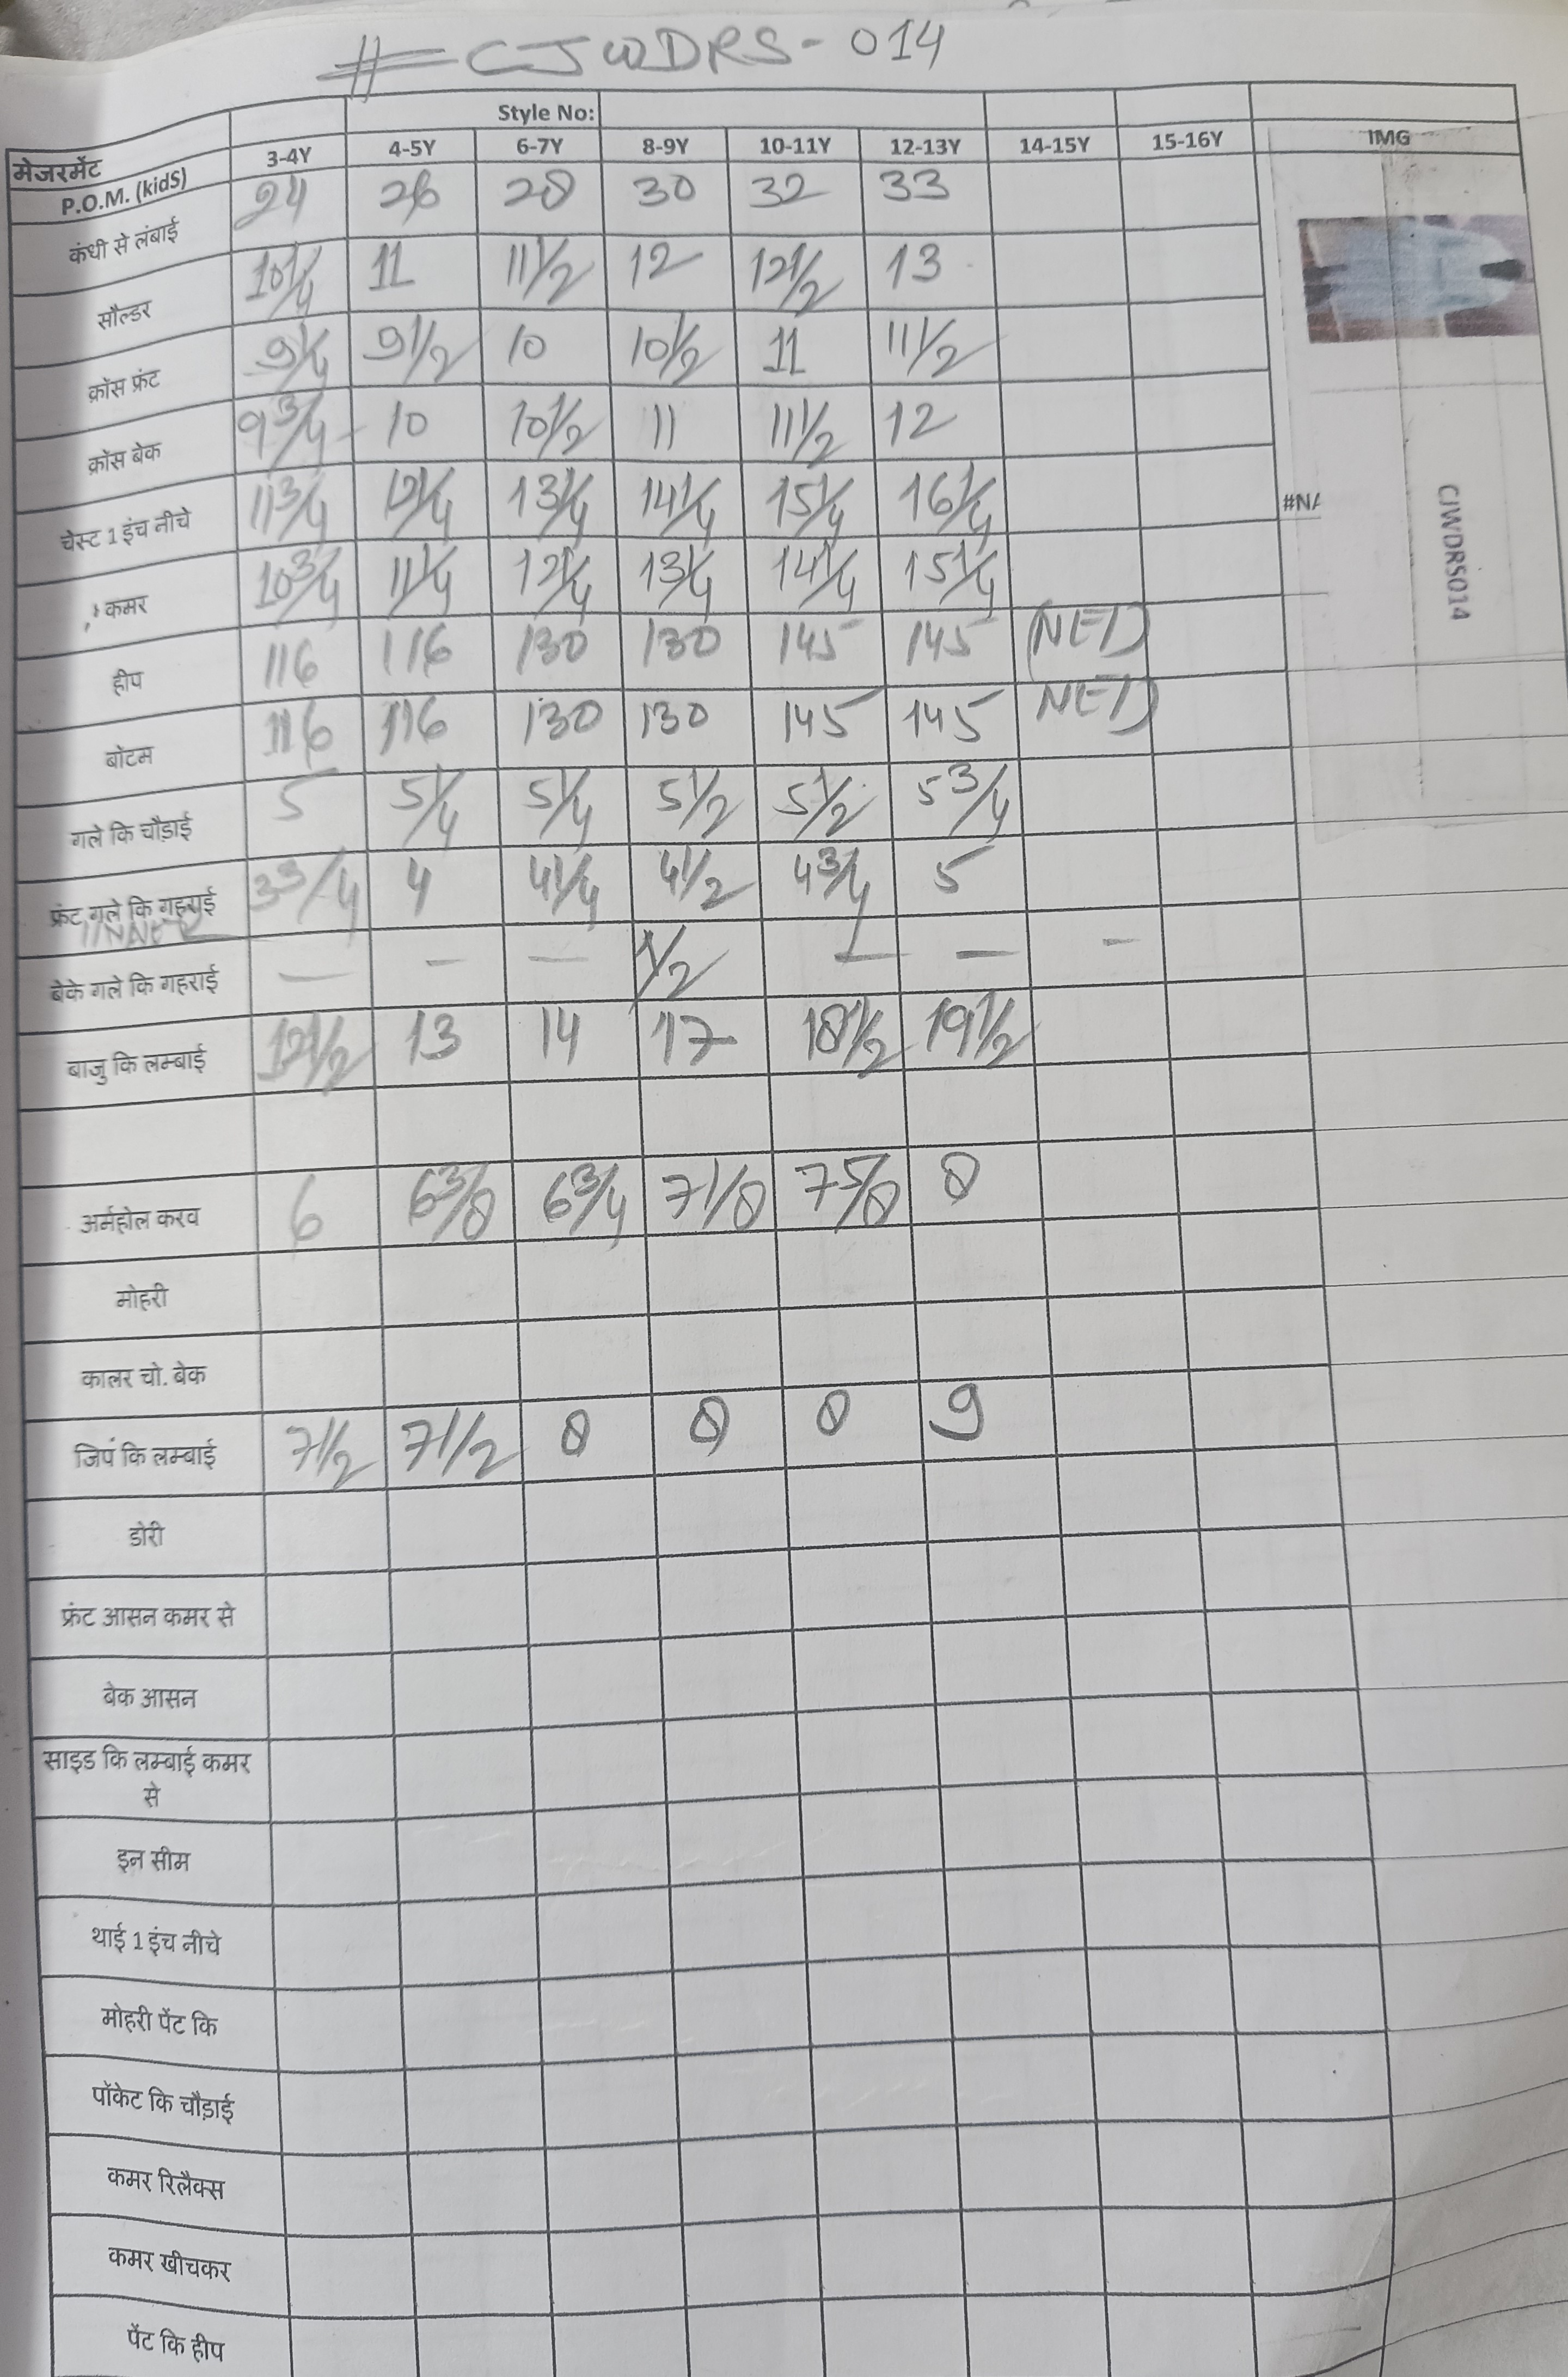 # CJWDRS-014
Style No:
मेजरमेंट P.O.M. (kidS) 3-4Y 4-5Y 6-7Y 8-9Y 10-11Y 12-13Y 14-15Y 15-16Y IMG
कंधी से लंबाई 24 26 28 30 32 33
सौल्डर 10 1/4 11 11 1/2 12 12 1/2 13
क्रॉस फ्रंट 9 1/4 9 1/2 10 10 1/2 11 11 1/2
क्रॉस बेक 9 3/4 10 10 1/2 11 11 1/2 12
चेस्ट 1 इंच नीचे 11 3/4 12 1/4 13 1/4 14 1/4 15 1/4 16 1/4
कमर 10 3/4 11 1/4 12 1/4 13 1/4 14 1/4 15 1/4
हीप 116 116 130 130 145 145 (NET)
बोटम 116 116 130 130 145 145 NET)
गले कि चौड़ाई 5 5 1/4 5 1/4 5 1/2 5 1/2 5 3/4
फ्रंट गले कि गहराई 3 3/4 4 4 1/4 4 1/2 4 3/4 5
INNER
बेके गले कि गहराई — — — 1/2 — — —
बाजु कि लम्बाई 12 1/2 13 14 17 18 1/2 19 1/2
अर्महोल करव 6 6 3/8 6 3/4 7 1/8 7 5/8 8
मोहरी
कालर चो. बेक
जिपं कि लम्बाई 7 1/2 7 1/2 8 8 8 9
डोरी
फ्रंट आसन कमर से
बेक आसन
साइड कि लम्बाई कमर
से
इन सीम
थाई 1 इंच नीचे
मोहरी पेंट कि
पॉकेट कि चौड़ाई
कमर रिलैक्स
कमर खीचकर
पेंट कि हीप
#N/
CJWDRS014